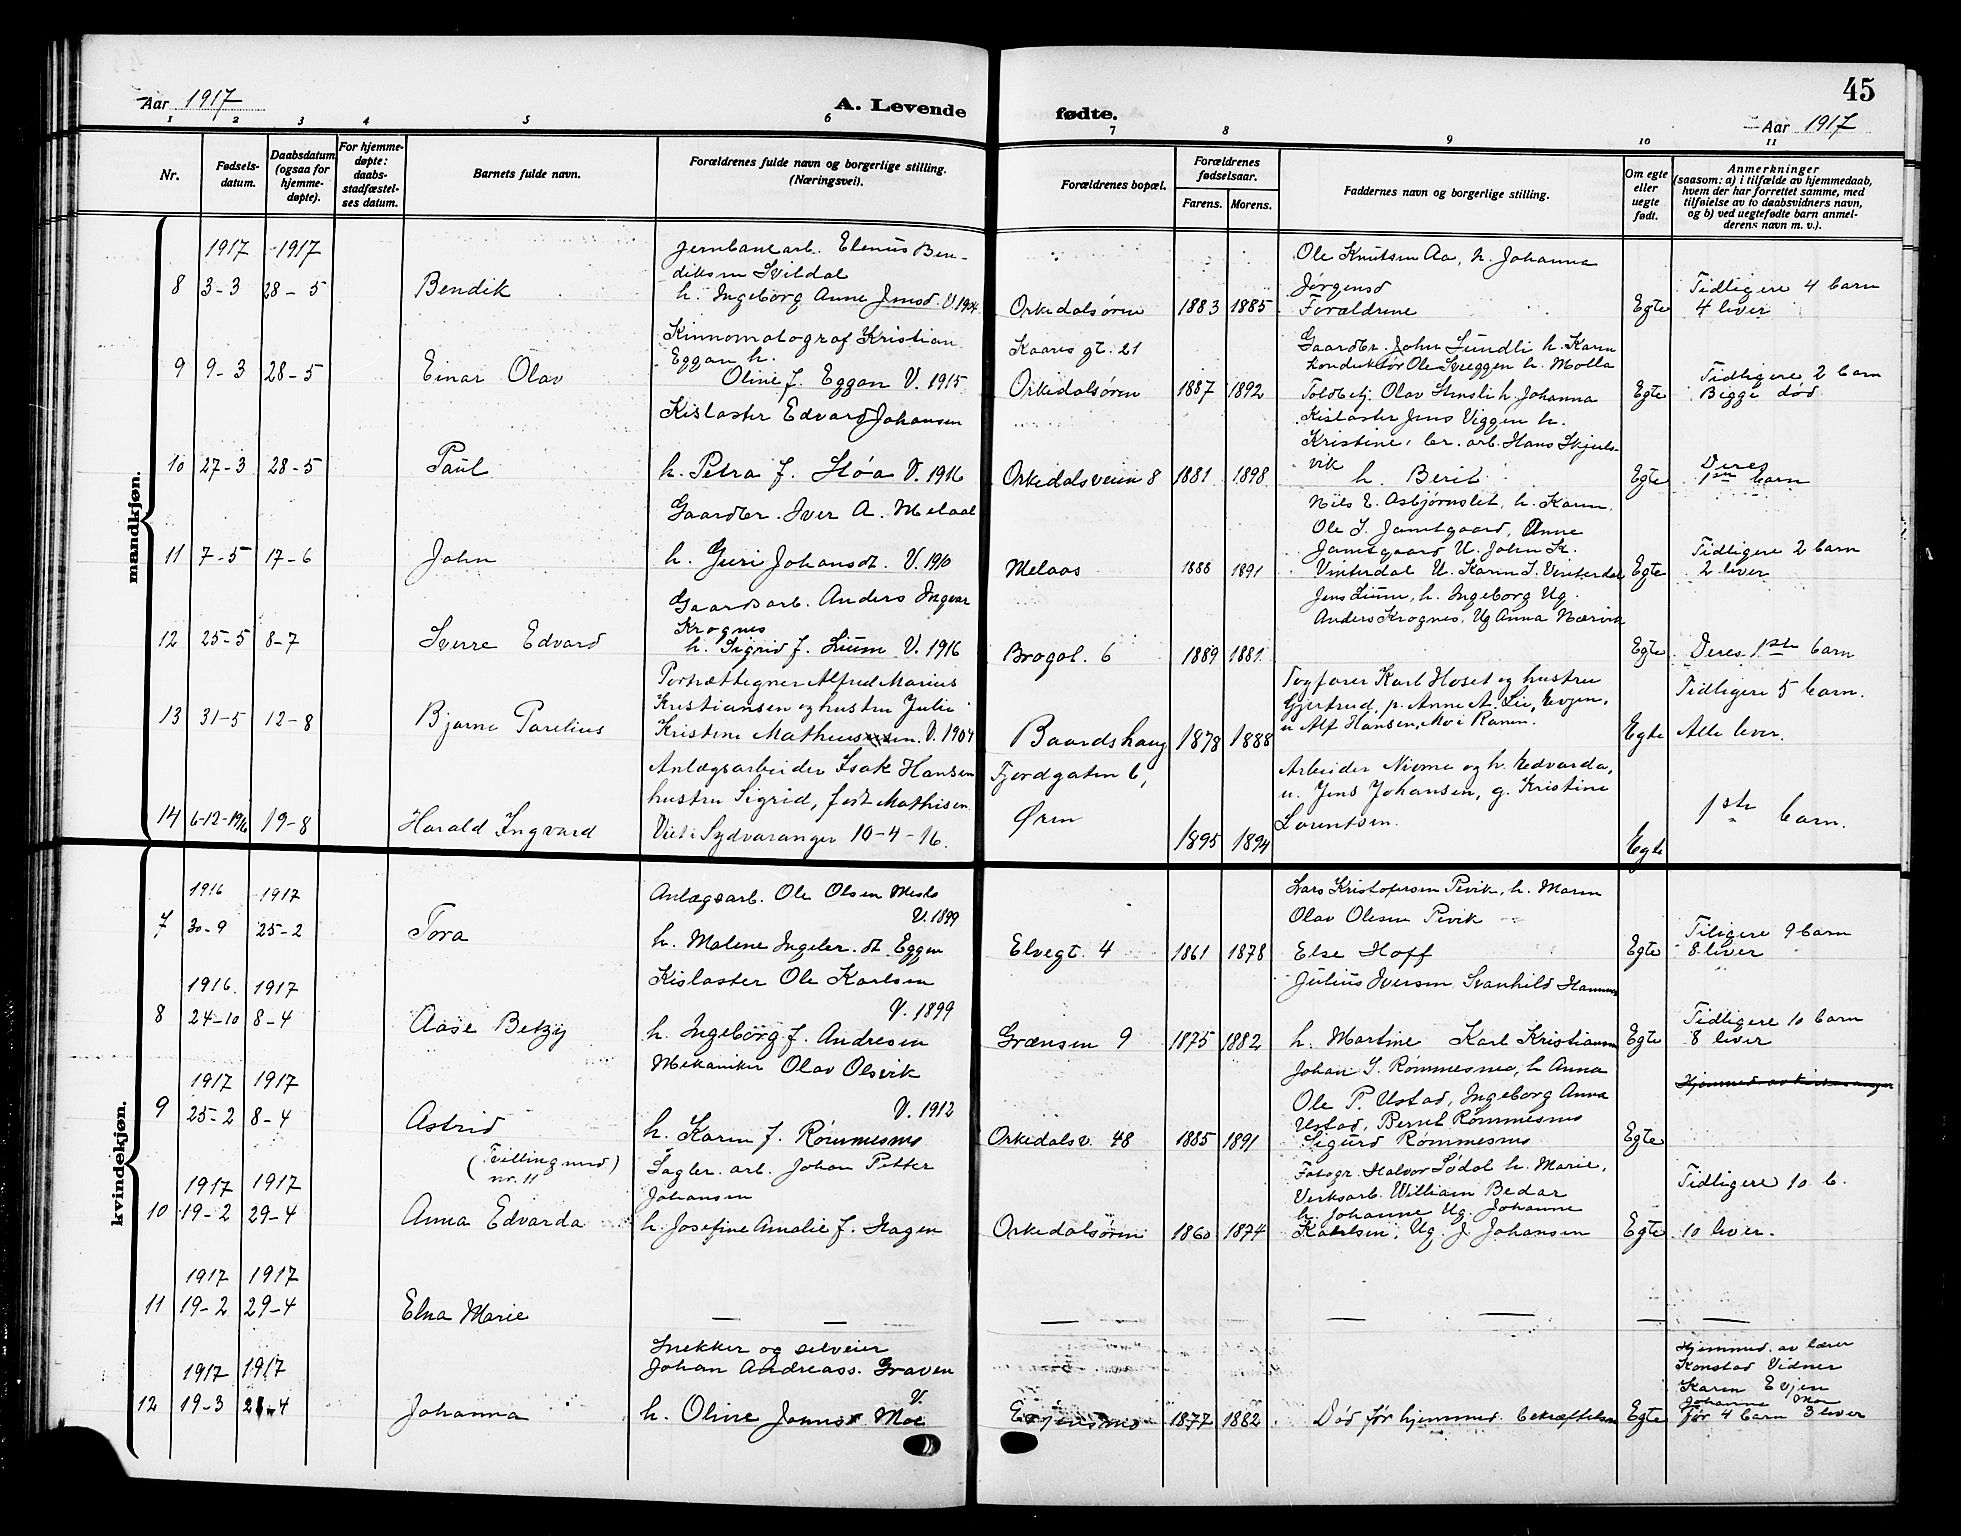 45
Aar 1917
A. Levende
fødte.
Aar 1917
1 2 3 4 5 6 7 8 9 10 11
Nr.
Fødsels-
datum.
Daabsdatum
(ogsaa for
hjemme-
døpte).
For hjemme-
døpte:
daabs-
stadfæstel-
ses datum.
Barnets fulde navn.
Forældrenes fulde navn og borgerlige stilling.
(Næringsvei).
Forældrenes bopæl.
Forældrenes
fødselsaar.
Farens. Morens.
Faddernes navn og borgerlige stilling.
Om egte
eller
uegte
født.
Anmerkninger
(saasom: a) i tilfælde av hjemmedaab,
hvem der har forrettet samme, med
tilføielse av to daabsvidners navn,
og b) ved uegtefødte barn anmel-
derens navn m. v.).
mandkjøn.
1917 1917
8 3-3 28-5
Bendik
Jernbanearb. Elenus Ben-
diksen Svildal
h. Ingeborg Anne Jensd. V. 1904
Orkedalsøren 1883 1885
Ole Knutsen Aa, h. Johanna
Jørgensd
Forældrene
Egte
Tidligere 4 barn
4 lever
9 9-3 28-5
Einar Olav
Kinnomatograf Kristian
Eggan h.
Oline f. Eggan V. 1915
Kaares gt. 21
Orkedalsøren 1887 1892
Gaardbr. John Sundli h. Karen
Konduktør Ole Sveggen h. Molla
Toldbetj. Olav Stensli h. Johanna
Egte
Tidligere 2 barn
Begge død
10 27-3 28-5
Paul
Kislaster Edvard Johansen
h. Petra f. Høa V. 1916
Orkedalsveien 8 1881 1898
Kislaster Jens Viggen h.
Kristine, br. arb. Hans Skjuls-
vik
h. Berit
Egte
Deres
1ste barn
11 7-5 17-6
John
Gaardbr. Iver A. Melaas
h. Guri Johansdt. V. 1910
Melaas 1888 1891
Nils E. Asbjørnslet, h. Karen
Ole I. Jamtgaard, Anne
Jamtgaard U. John K.
Vinterdal U. Karen I. Vinterdal
Egte
Tidligere 2 barn
2 lever
12 25-5 8-7
Sverre Edvard
Gaardsarb. Anders Ingvar
Krognes
h. Sigrid f. Lium V. 1916
Brogat. 6 1889 1881
Jens Lium, h. Ingeborg Ug.
Anders Krognes, Ug Anna Nærvik
Egte
Deres 1ste barn
13 31-5 12-8
Bjarne Parelius
Portrættegner Alfred Marius
Kristiansen og hustru Julie
Kristine Matheussen. V. 1904
Baardshaug 1878 1888
Togfører Karl Hoset og hustru
Gjertrud, p. Anne A. Lie, Evjen,
u Alf Hansen, Mo i Ranen.
Egte
Tidligere 5 barn.
Alle lever.
14 6-12-1916 19-8
Harald Ingvard
Anlægsarbeider Isak Hansen
hustru Sigrid, født Mathisen
Viet i Sydvaranger 10-4-16.
Fjordgaten 6,
Øren
1895 1894
Arbeider Nieme og h. Edvarda,
u. Jens Johansen, g. Kristine
Lorentsen.
Egte
1ste barn.
kvindekjøn.
1916 1917
7 30-9 25-2
Tora
Anlægsarb. Ole Olsen Mesto
V. 1899
h. Malene Ingebr. dt. Eggen
Elvegt. 4 1861 1878
Lars Kristofersen Pevik, h. Maren
Olav Olesen Pevik
Else Hoff
Egte
Tiligere 9 barn
8 lever
1916. 1917
8 24-10 8-4
Aase Betzy
Kislaster Ole Karlsen
V. 1899
h. Ingeborg f. Andresen
Grænsen 9 1875 1882
Julius Iversen Svanhild Hammer
h. Martine Karl Kristiansen
Egte
Tidligere 10 barn
8 lever
1917 1917
9 25-2 8-4
Astrid
Mekaniker Olav Olsvik
V. 1912
h. Karen f. Rømmesmo
Orkedalsv. 48 1885 1891
Johan I. Rømmesmo, h Anna
Ole P. Ustad, Ingeborg Anna
Ustad, Bernt Rømmesmo
Sigurd Rømmesmo
Egte
1917 1917
10 19-2 29-4
(Tvilling med
nr. 11)
Anna Edvarda
Sagbr. arb. Johan Petter
Johansen
h. Josefine Amalie f. Hagen
Orkedalsøren 1860 1874
Fotogr. Halvor Sødal h. Marie,
Verksarb. William Bedar
h. Johanne Ug. Johanne
Karlsen, Ug. J. Johansen
Egte
Tidligere 10 b.
10 lever.
1917 1917
11 19-2 29-4
Elna Marie
— — — — — —
1917 1917
12 19-3 21-4
Johanna
Snekker og selveier
Johan Andreass. Graven
V.
h. Oline Jonns. Moe
Evjensmo 1877 1882
Død før hjemmed. bekræftelsen
Egte
Hjemmed. av lærer
Konstad Vidner
Karen Evjen
Johanne Moe
Før 4 barn 3 lever